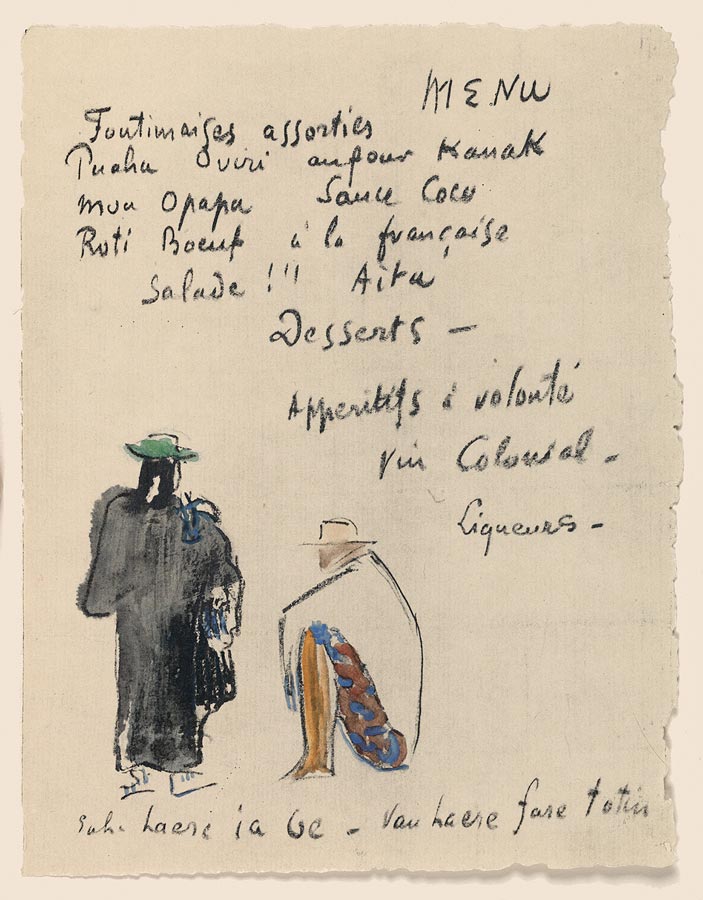 MENU
Foutimaises assorties
Puaha Oviri aufour Kanak
Moa Opapa Sauce Coco
Roti Boeuf à la française
Salade !!! Aita
Desserts —
Apperitifs à volonté
Vin Colonial -
Liqueurs -
haere ia oe - Vau haere fare